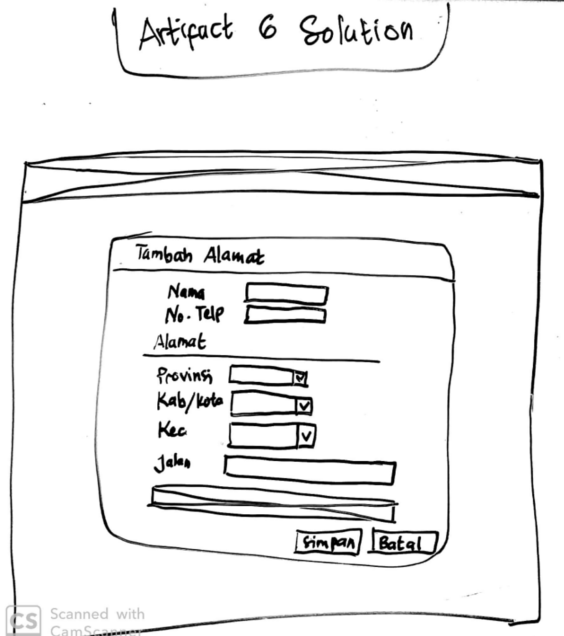 Artifact 6 Solution
Tambah Alamat
Nama
No. Telp
Alamat
Provinsi
Kab/kota
Kec
Jalan
Simpan Batal
CS Scanned with
CamScanner